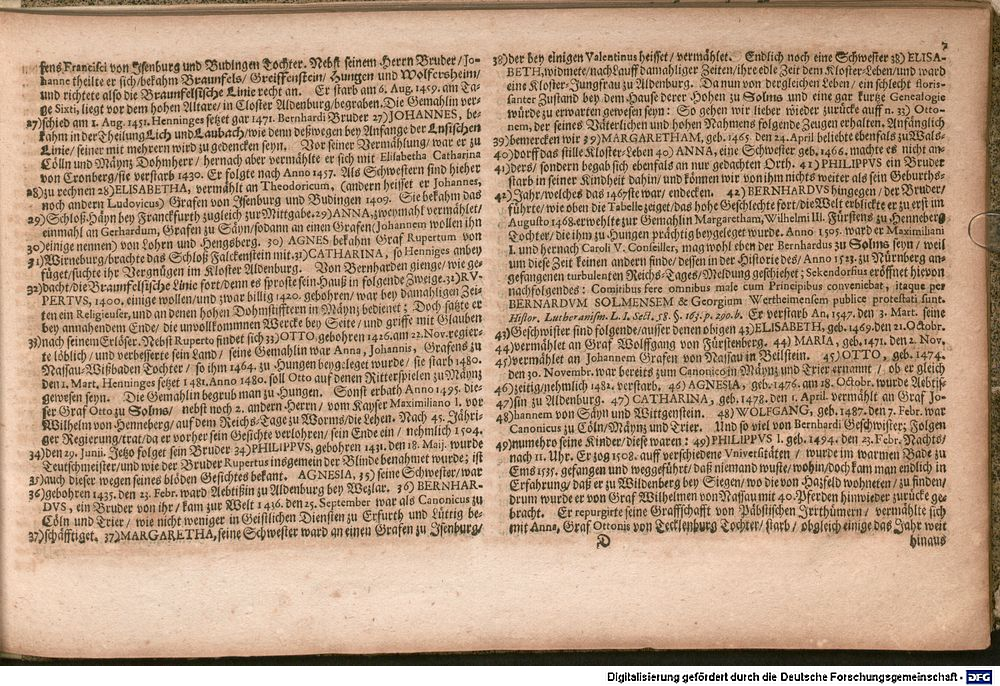 fens Francisci von Isenburg und Budingen Tochter. Nebst seinem Herrn Bruder / Jo-
hanne theilte er sich / bekahm Braunfels / Greiffenstein / Hungen und Wolfersheim /
und richtete also die Braunfelsische Linie recht an. Er starb am 6. Aug. 1459. am Ta-
ge Sixti, liegt vor dem hohen Altare / in Closter Aldenburg / begraben. Die Gemahlin ver-
27) schied am 1. Aug. 1451. Henninges setzet gar 1471. Bernhardi Bruder 27) JOHANNES, be-
kahm in der Theilung Lich und Laubach / wie denn deßwegen bey Anfange der Lnsischen
Linie / seiner mit mehrern wird zu gedencken seyn. Vor seiner Vermählung / war er zu
Cölln und Mäyntz Dohmherr / hernach aber vermählte er sich mit Elisabetha Catharina
von Cronberg / sie verstarb 1430. Er folgte nach Anno 1457. Als Schwestern sind hieher
28) zu rechnen 28) ELISABETHA, vermählt an Theodoricum, (andern heisset er Johannes,
noch andern Ludovicus) Grafen von Isenburg und Budingen 1409. Sie bekahm das
29) Schloß Häyn bey Franckfurth zugleich zur Mittgabe. 29) ANNA, zweymahl vermählet /
einmahl an Gerhardum, Grafen zu Säyn / sodann an einen Grafen (Johannem wollen ihn
30) einige nennen) von Lohrn und Hengsberg. 30) AGNES bekahm Graf Rupertum von
31) Wirneburg / brachte das Schloß Falckenstein mit. 31) CATHARINA, so Henniges anbey
füget / suchte ihr Vergnügen im Kloster Aldenburg. Von Bernharden gienge / wie ge-
32) dacht / die Braunfelsische Linie fort / denn es sproste sein Hauß in folgende Zweige. 32) RU-
PERTVS, 1400. einige wollen / und zwar billig 1420. gebohren / war bey damahligen Zei-
ten ein Religieuser, und an denen hohen Dohmstifftern in Mäyntz bedienet; Doch satzte er
bey annahmendem Ende / die unvollkommnen Wercke bey Seite / und griffe mit Glauben
33) nach seinem Erlöser. Nebst Ruperto findet sich 33) OTTO, gebohren 1426. am 22. Nov. regier-
te löblich / und verbesserte sein Land / seine Gemahlin war Anna, Johannis, Grafens zu
Nassau-Wißbaden Tochter / so ihm 1464. zu Hungen beygeleget wurde / sie starb 1480.
den 1. Mart, Henninges setzet 1481. Anno 1480. soll Otto auf denen Ritterspielen zu Mäyntz
gewesen seyn. Die Gemahlin begrub man zu Hungen. Sonst erbath Anno 1495. die-
ser Graf Otto zu Solms / nebst noch 2. andern Herrn / vom Kayser Maximiliano I. vor
Wilhelm von Henneberg / auf dem Reichs-Tage zu Worms / die Lehen. Nach 45. Jähri-
ger Regierung / trat / da er vorher sein Gesichte verlohren / sein Ende ein / nehmlich 1504.
34) den 29. Junii. Jetzo folget sein Bruder 34) PHILIPPVS, gebohren 1431. den 18. Maij. wurde
Teutschmeister / und wie der Bruder Rupertus insgemein der Blinde benahmet wurde; ist
35) auch dieser wegen seines blöden Gesichtes bekant. AGNESIA, 35) seine Schwester / war
36) gebohren 1435. den 23. Febr. ward Aebtißin zu Aldenburg bey Wezlar. 36) BERNHAR-
DVS, ein Bruder von ihr / kam zur Welt 1436. den 25. September war als Canonicus zu
Cöln und Trier / wie nicht weniger in Geistlichen Diensten zu Erfurth und Lüttig be-
37) schäfftiget. 37) MARGARETHA, seine Schwester ward an einen Grafen zu Isenburg /
38) der bey einigen Valentinus heisset / vermählet. Endlich noch eine Schwester 38) ELISA-
BETH, widmete / nach Lauff damahliger Zeiten / ihre edle Zeit dem Kloster-Leben / und ward
eine Kloster-Jungfrau zu Aldenburg. Da nun von dergleichen Leben / ein schlecht floris-
santer Zustand bey dem Hause derer Hohen zu Solms und eine gar kurtze Genealogie
würde zu erwarten gewesen seyn: So gehen wir lieber wieder zurücke auff n. 33) Otto-
nem, der seines Väterlichen und hohen Nahmens folgende Zeugen erhalten. Anfänglich
39) bemercken wir 39) MARGARETHAM, geb. 1465. den 24. April beliebte ebenfals zu Wals-
40) dorff das stille Kloster-Leben 40) ANNA, eine Schwester geb. 1466. machte es nicht an-
41) ders / sondern begab sich ebenfals an nur gedachten Orth. 41) PHILIPPVS ein Bruder
starb in seiner Kindheit dahin / und können wir von ihm nichts weiter als sein Geburths-
42) Jahr / welches das 1467ste war / endecken. 42) BERNHARDVS hingegen / der Bruder /
führte / wie oben die Tabelle zeiget / das hohe Geschlechte fort / die Welt erblickte er zu erst im
Augusto 1468. er wehlte zur Gemahlin Margaretham, Wilhelmi III. Fürstens zu Henneberg
Tochter / die ihm zu Hungen prächtig beygeleget wurde. Anno 1505. ward er Maximiliani
I. und hernach Caroli V. Conseiller, mag wohl eben der Bernhardus zu Solms seyn / weil
um diese Zeit keinen andern finde / dessen in der Historie des / Anno 1523. zu Nürnberg an-
gefangenen turbulenten Reichs-Tages / Meldung geschiehet; Sekendorfius eröffnet hievon
nachfolgendes: Comitibus fere omnibus male cum Principibus conveniebat, itaque per
BERNARDVM SOLMENSEM & Georgium Wertheimensem publice protestati sunt.
Histor. Lutheranism. L. I. Sect. 58. §. 163. p. 290. b. Er verstarb An. 1547. den 3. Mart. seine
43) Geschwister sind folgende / ausser denen obigen 43) ELISABETH, geb. 1469. den 21. Octobr.
44) vermählet an Graf Wolffgang von Fürstenberg. 44) MARIA, geb. 1471. den 2. Nov.
45) vermählet an Johannem Grafen von Nassau in Beilstein. 45) OTTO, geb. 1474.
den 30. Novembr. war bereits zum Canonico in Mäyntz und Trier ernannt / ob er gleich
46) zeitig / nehmlich 1482. verstarb. 46) AGNESIA, geb. 1476. am 18. Octobr. wurde Aebtiß-
47) sin zu Aldenburg. 47) CATHARINA, geb. 1478. den 1. April. vermählet an Graf Jo-
48) hannem von Säyn und Wittgenstein. 48) WOLFGANG, geb. 1487. den 7. Febr. war
Canonicus zu Cöln / Mäyntz und Trier. Und so viel von Bernhardi Geschwister; Folgen
49) numehro seine Kinder / diese waren: 49) PHILIPPVS I. geb. 1494. den 23. Febr. Nachts /
nach 11. Uhr. Er zog 1508. auff verschiedene Vniversitäten / wurde im warmen Bade zu
Ems 1535. gefangen und weggeführt / daß niemand wuste / wohin / doch kam man endlich in
Erfahrung / daß er zu Wildenberg bey Siegen / wo die von Hazfeld wohneten / zu finden /
drum wurde er von Graf Wilhelmen von Nassau mit 40. Pferden hinwieder zurücke ge-
bracht. Er repurgirte seine Graffschafft von Päbstischen Irrthümern / vermählte sich
mit Anna, Graf Ottonis von Tecklenburg Tochter / starb / obgleich einige das Jahr weit
D
hinaus
Digitalisierung gefördert durch die Deutsche Forschungsgemeinschaft - DFG